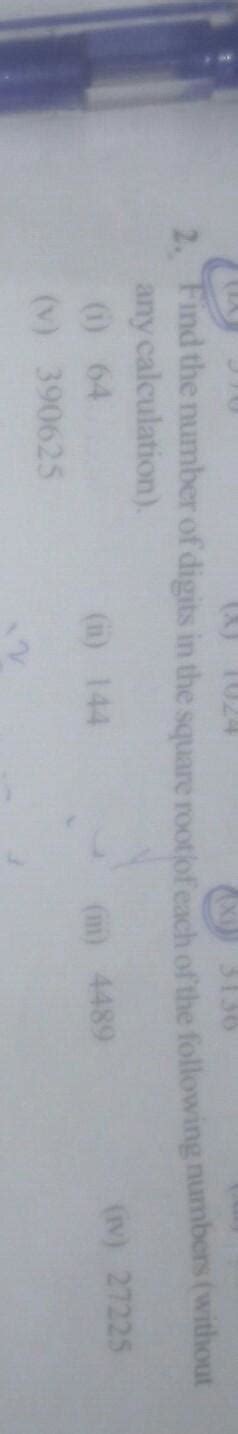 (x) 1024 (xi) 3136
2. Find the number of digits in the square root of each of the following numbers (without
any calculation).
(i) 64 (ii) 144 (iii) 4489 (iv) 27225
(v) 390625